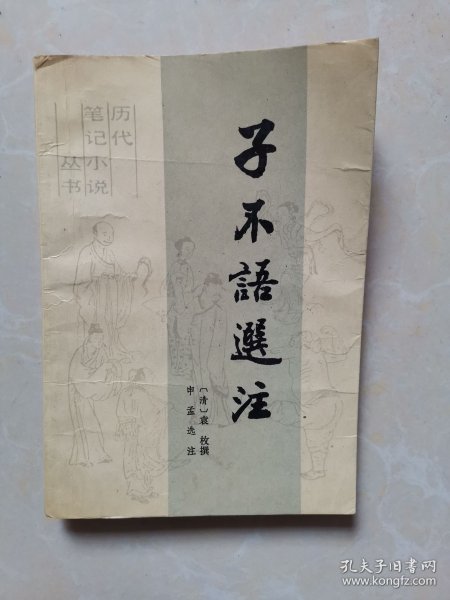 历代
笔记小说
丛书
子不語選注
〔清〕袁枚撰
申孟选注
孔夫子旧书网
www.kongfz.com